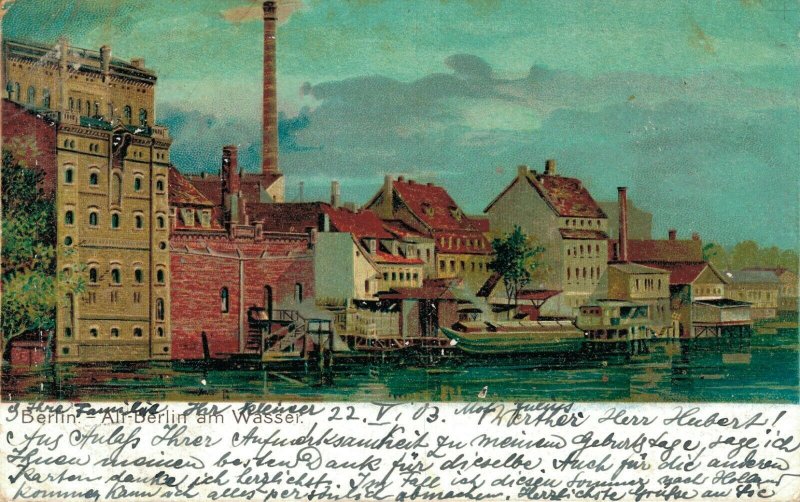 & Ihre Familie Ihr kleiner 22. V. 03. Werther Herr Hubert!
Berlin. Alt-Berlin am Wasser.
Aus Anlaß Ihrer Aufmerksamkeit zu meinem Geburtstage, sage ich
Ihnen meinen besten Dank für dieselbe. Auch für die anderen
Karten danke ich herzlichst. Im Fall ich diesen Sommer nach Holland
komme, kann ich alles persönlich abmachen. Herzlichste Grüße an Sie